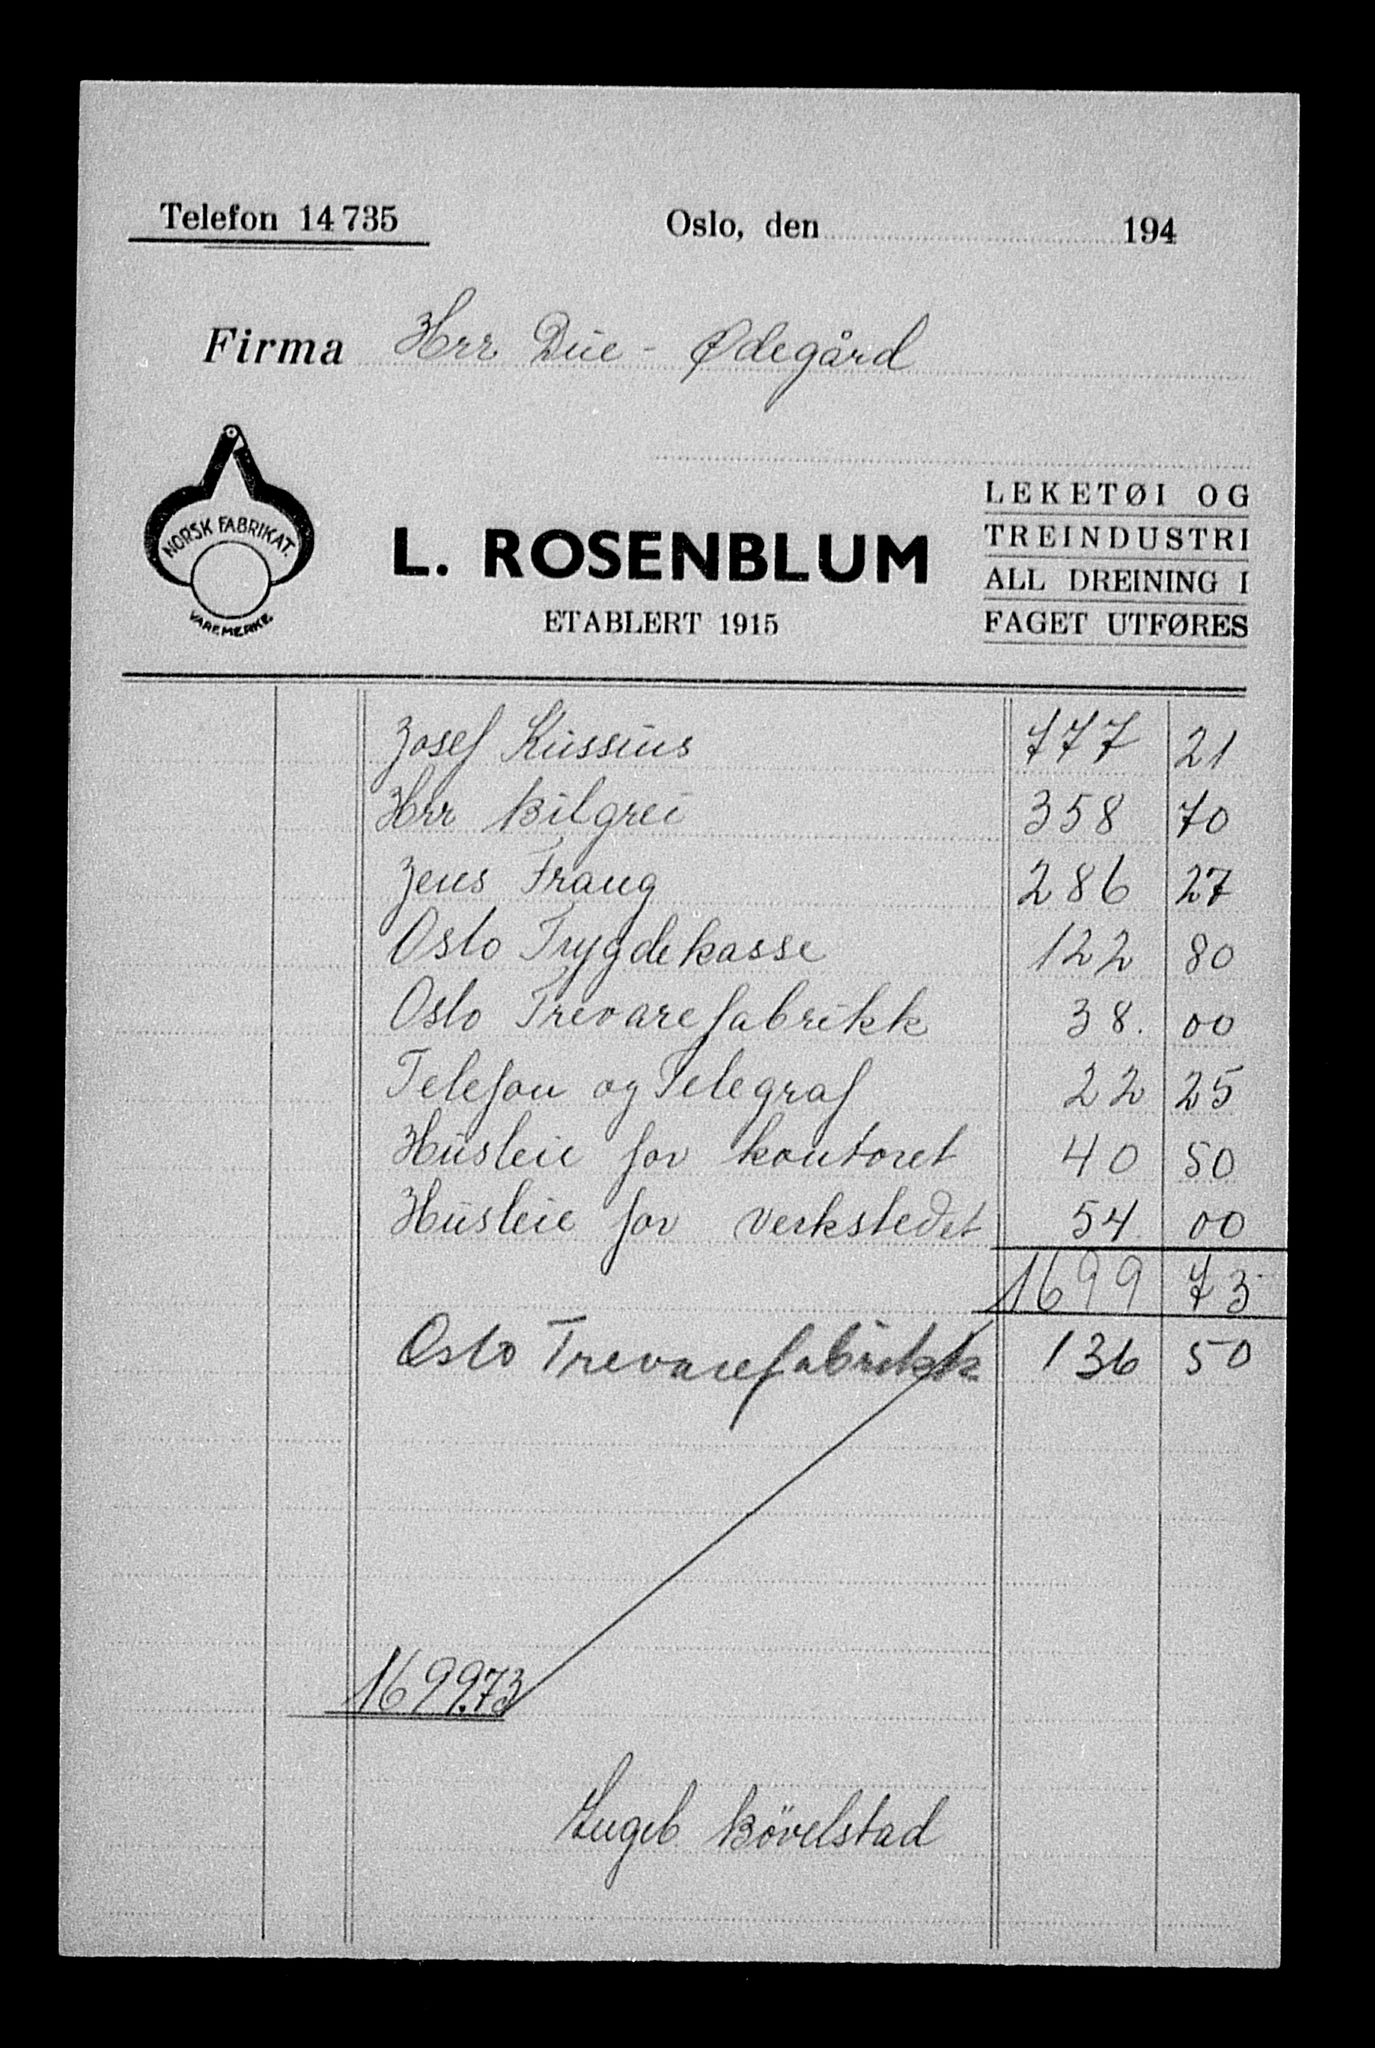 Telefon 14 735 Oslo, den 194
Firma Herr Due - Ødegård
NORSK FABRIKAT.
VAREMERKE
L. ROSENBLUM
ETABLERT 1915
LEKETØI OG
TREINDUSTRI
ALL DREINING I
FAGET UTFØRES
Josef Kussius 777 21
Herr Bilgrei 358 70
Jens Fraug 286 27
Oslo Trygdekasse 122 80
Oslo Trevarefabrikk 38. 00
Telefon og Telegraf 22 25
Husleie for kontoret 40 50
Husleie for verkstedet 54 00
1699 73
Oslo Trevarefabrikk 136 50
1699.73
Ingeb. Bövelstad